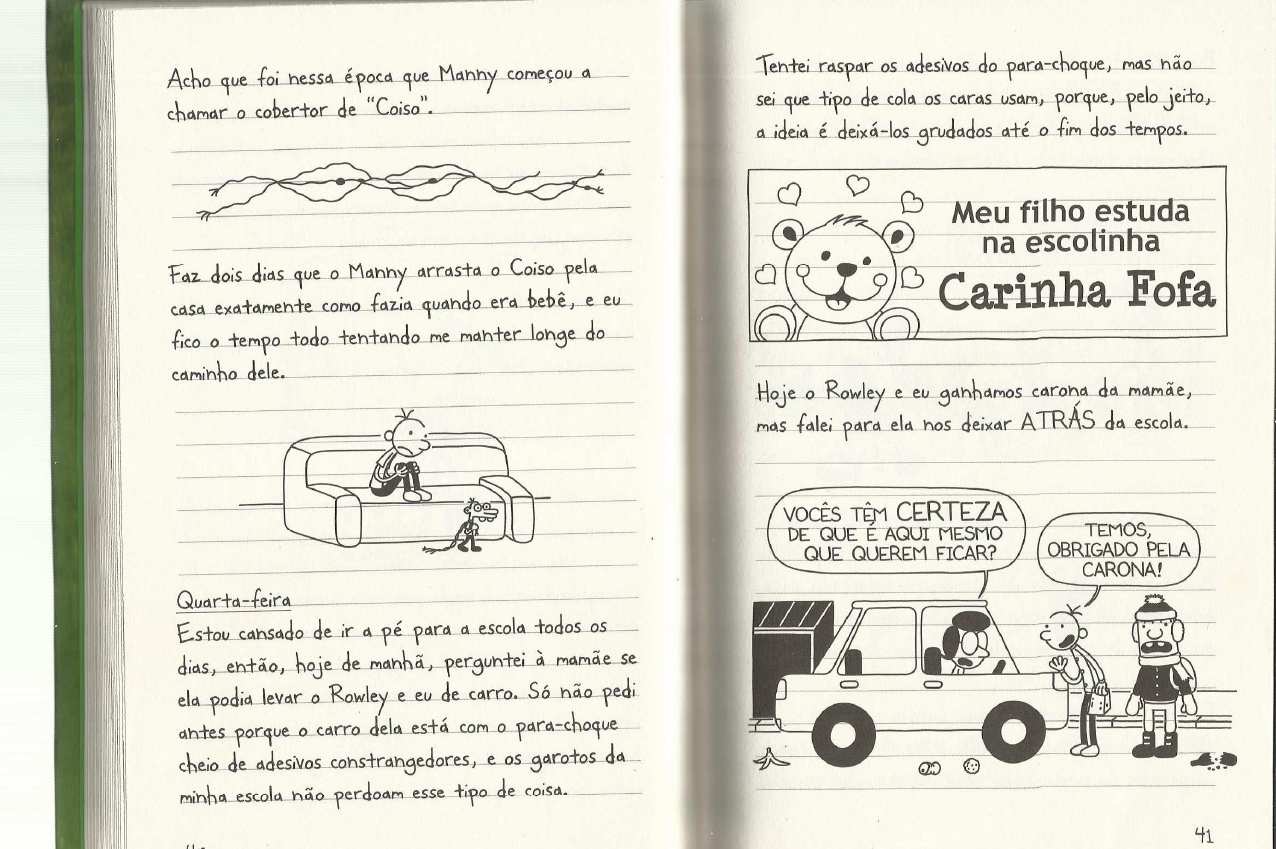 Acho que foi nessa época que Manny começou a
chamar o cobertor de "Coiso".
Faz dois dias que o Manny arrasta o Coiso pela
casa exatamente como fazia quando era bebê, e eu
fico o tempo todo tentando me manter longe do
caminho dele.
Quarta-feira
Estou cansado de ir a pé para a escola todos os
dias, então, hoje de manhã, perguntei à mamãe se
ela podia levar o Rowley e eu de carro. Só não pedi
antes porque o carro dela está com o para-choque
cheio de adesivos constrangedores, e os garotos da
minha escola não perdoam esse tipo de coisa.
Tentei raspar os adesivos do para-choque, mas não
sei que tipo de cola os caras usam, porque, pelo jeito,
a ideia é deixá-los grudados até o fim dos tempos.
Meu filho estuda
na escolinha
Carinha Fofa
Hoje o Rowley e eu ganhamos carona da mamãe,
mas falei para ela nos deixar ATRÁS da escola.
VOCÊS TÊM CERTEZA
DE QUE É AQUI MESMO
QUE QUEREM FICAR?
TEMOS,
OBRIGADO PELA
CARONA!
41